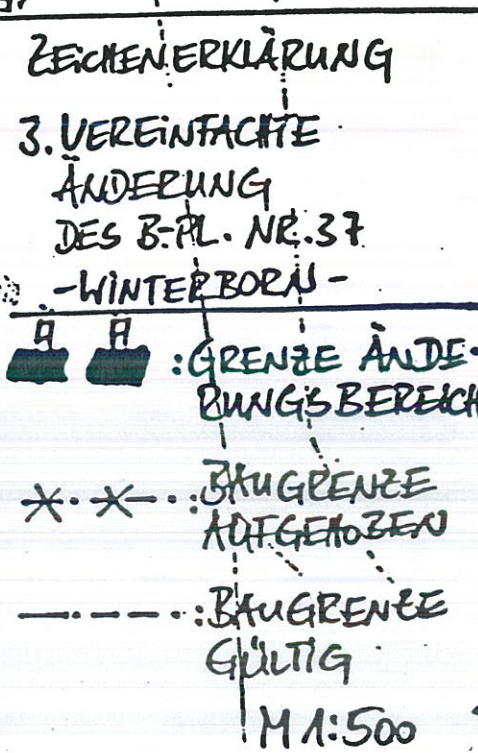 ZEICHENERKLÄRUNG
3. VEREINFACHTE
ÄNDERUNG
DES B-PL. NR. 37
-WINTERBORN-
:GRENZE ÄNDE-
RUNGSBEREICH
:BAUGRENZE
AUFGEHOBEN
:BAUGRENZE
GÜLTIG
M 1:500